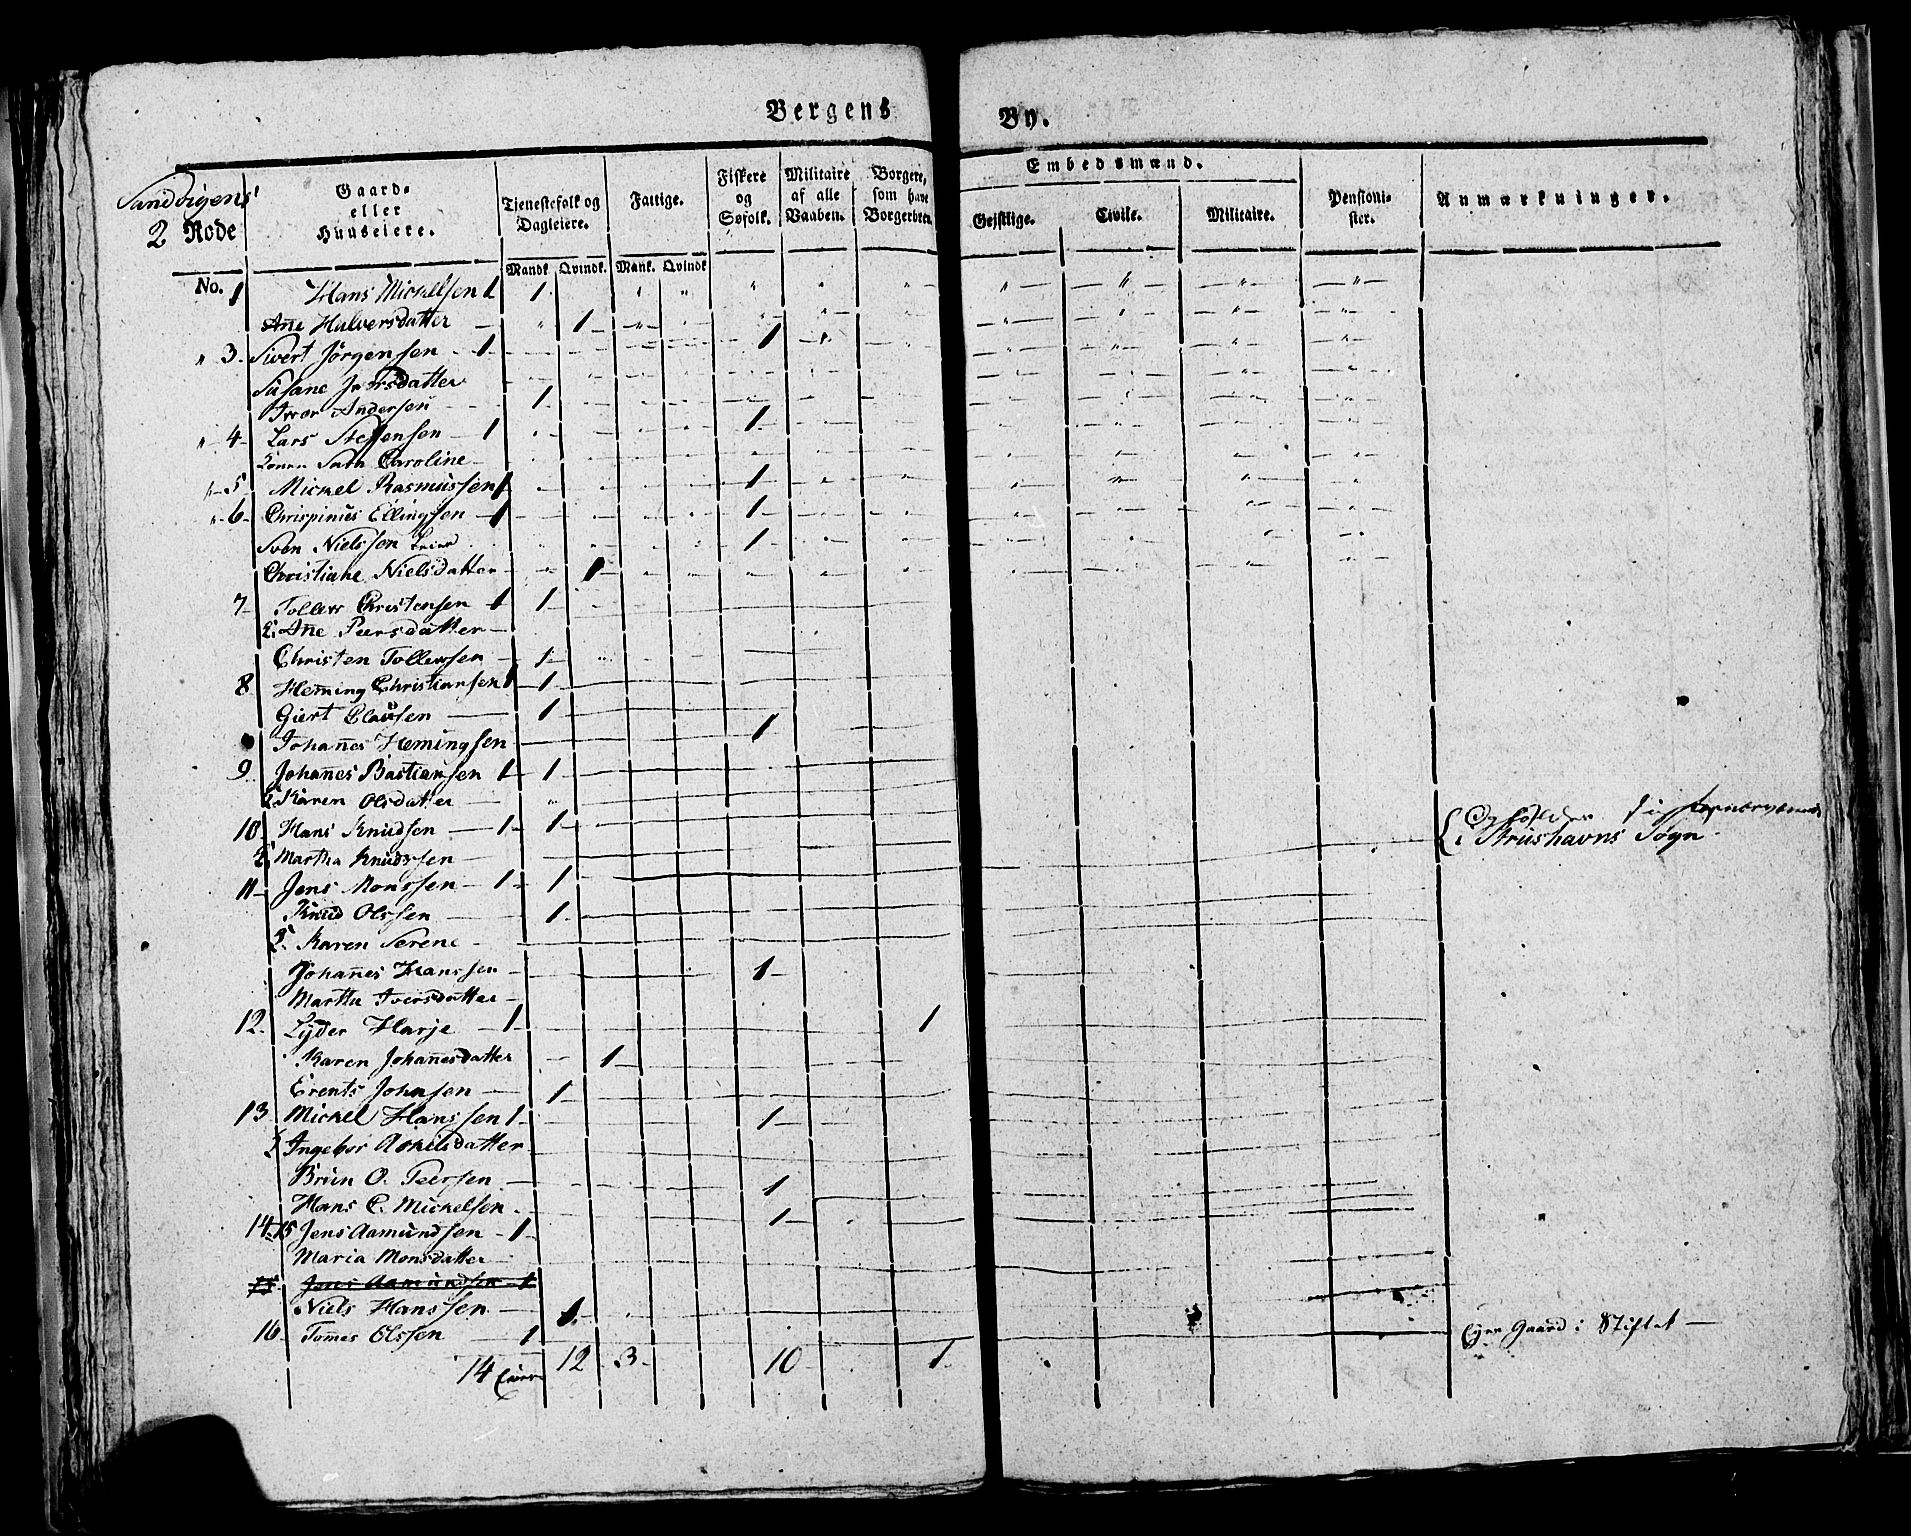 Bergens By.
Sandvigens'
2 Rode
Gaard- eller Huuseiere.
Tjenestefolk og Dagleiere.
Fattige.
Fiskere og Søfolk.
Militaire af alle Vaaben.
Borgere, som have Borgerbrev.
Embedsmænd.
Geistlige.
Civile.
Militaire.
Pensionister.
Anmærkninger.
No.
Mandk. Qvindk. Mank. Qvindk.
1 Hans Mickelsen 1 1
Añe Halversdatter 1
" 3 Sivert Jørgensen 1 1
Susane Iversdatter
Iver Andersen 1
" 4 Lars Steffensen 1 1
Sara Caroline
" 5 Mickel Rasmussen 1 1
" 6 Chrispinus Ellingsen 1 1
Sven Nielssen 1
Christiane Nielsdatter 1
7 Tollew Christensen 1 1
Añe Peersdatter
Christen Tollewsen 1
8 Heming Christiansen 1 1
Giert Clausen 1
Johañes Hemingsen 1
9 Johañes Bastiansen 1 1
Karen Olsdatter
10 Hans Knudsen 1 1
i Strushavns Sogn.
Martha Knudssen
11 Jens Monssen 1 1
Knud Olssen 1
Karen Serene
Johañes Hanssen 1
Martha Iversdatter
12 Lyder Harje 1 1
Karen Johañesdatter 1
Erents Johnsen 1
13 Mickel Hanssen 1 1
Ingebor Askelsdatter
Brun O. Peersen 1
Hans C. Mickelsen 1
14 15 Jens Aamundsen 1
Maria Monsdatter
15 Jens Aamundsen 1
Niels Hanssen 1
16 Tomes Olssen 1 Gaard i Stiftet
14 12 3 10 1